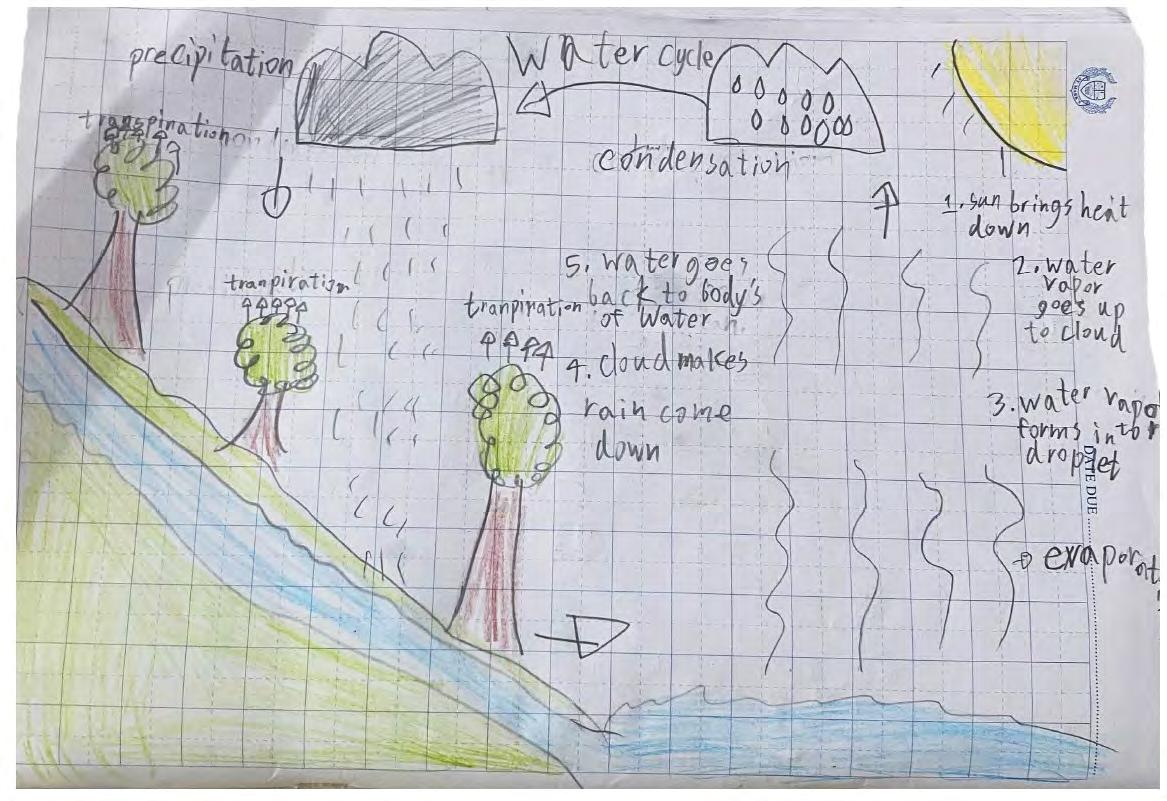 Water cycle
precipitation
transpiration
condensation
1. sun brings heat
down
2. water
vapor
goes up
to cloud
3. water vapor
forms into
droplet
tranpiration
tranpiration
5. water goes
back to body's
of water
4. cloud makes
rain come
down
DATE DUE
evaporat